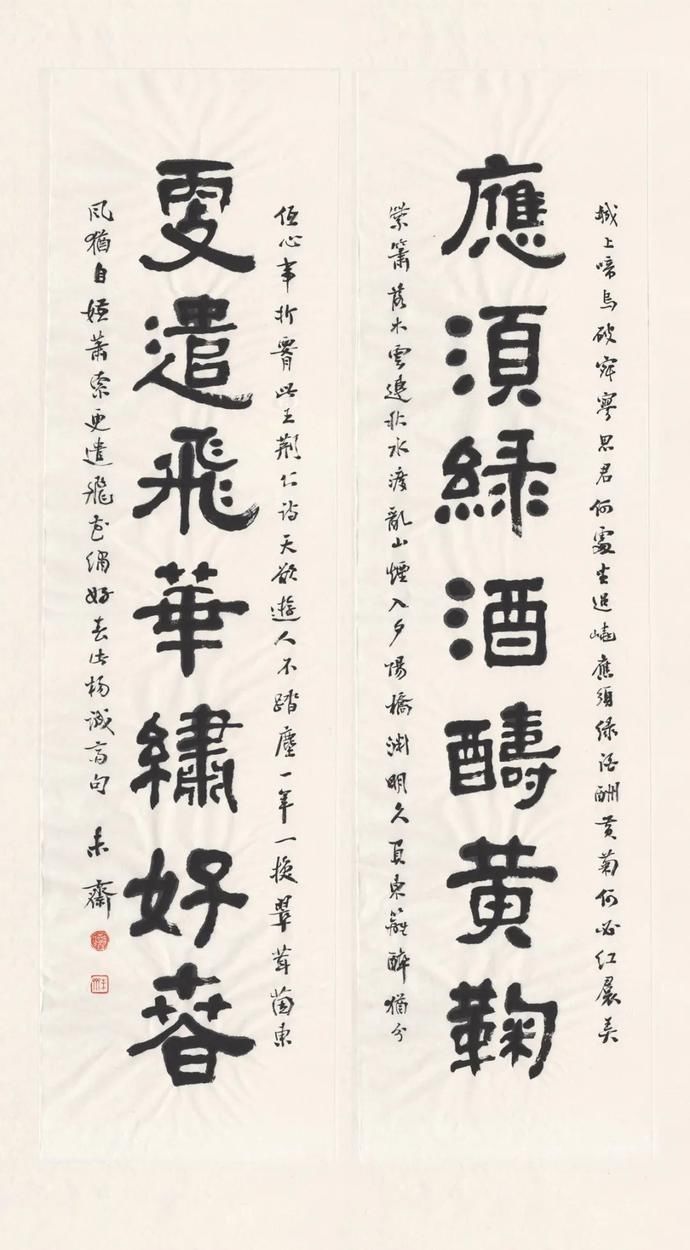 城上啼烏破寂寥思君何處坐岧嶢應須綠酒酬黃菊何必紅裙弄
應須綠酒醻黃鞠
紫簫落木雲連秋水渡亂山煙入夕陽橋淵明久負東籬醉猶分
低心事折腰此王荊公詩天欲遊人不踏塵一年一換翠茸茵東
更遣飛華繡好萅
風猶自嫌蕭索更遣飛花繡好春此楊誠齋句 未齋